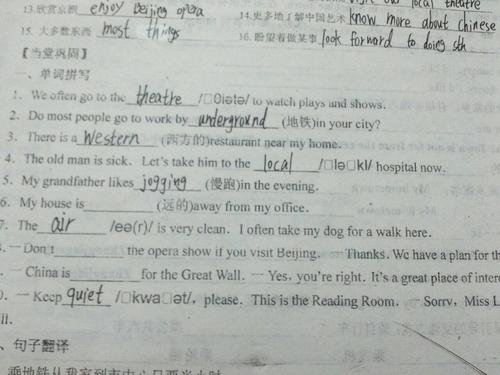 13.欣赏京剧 enjoy Beijing opera
our local theatre
14.更多地了解中国艺术 know more about Chinese
15. 大多数东西 most things
16.盼望着做某事 look forward to doing sth
【当堂巩固】
一、单词拼写
1. We often go to the theatre /□θiətə/ to watch plays and shows.
2. Do most people go to work by underground (地铁)in your city?
3. There is a Western (西方的)restaurant near my home.
4. The old man is sick. Let's take him to the local /□lə□kl/ hospital now.
5. My grandfather likes jogging (慢跑)in the evening.
6. My house is (远的)away from my office.
7. The air /eə(r)/ is very clean. I often take my dog for a walk here.
— Don't the opera show if you visit Beijing. — Thanks. We have a plan for th
— China is for the Great Wall. — Yes, you're right. It's a great place of inter
— Keep quiet /□kwa□ət/, please. This is the Reading Room. — Sorry, Miss L
ll.
、句子翻译
乘地铁从我家到市中心只要半小时